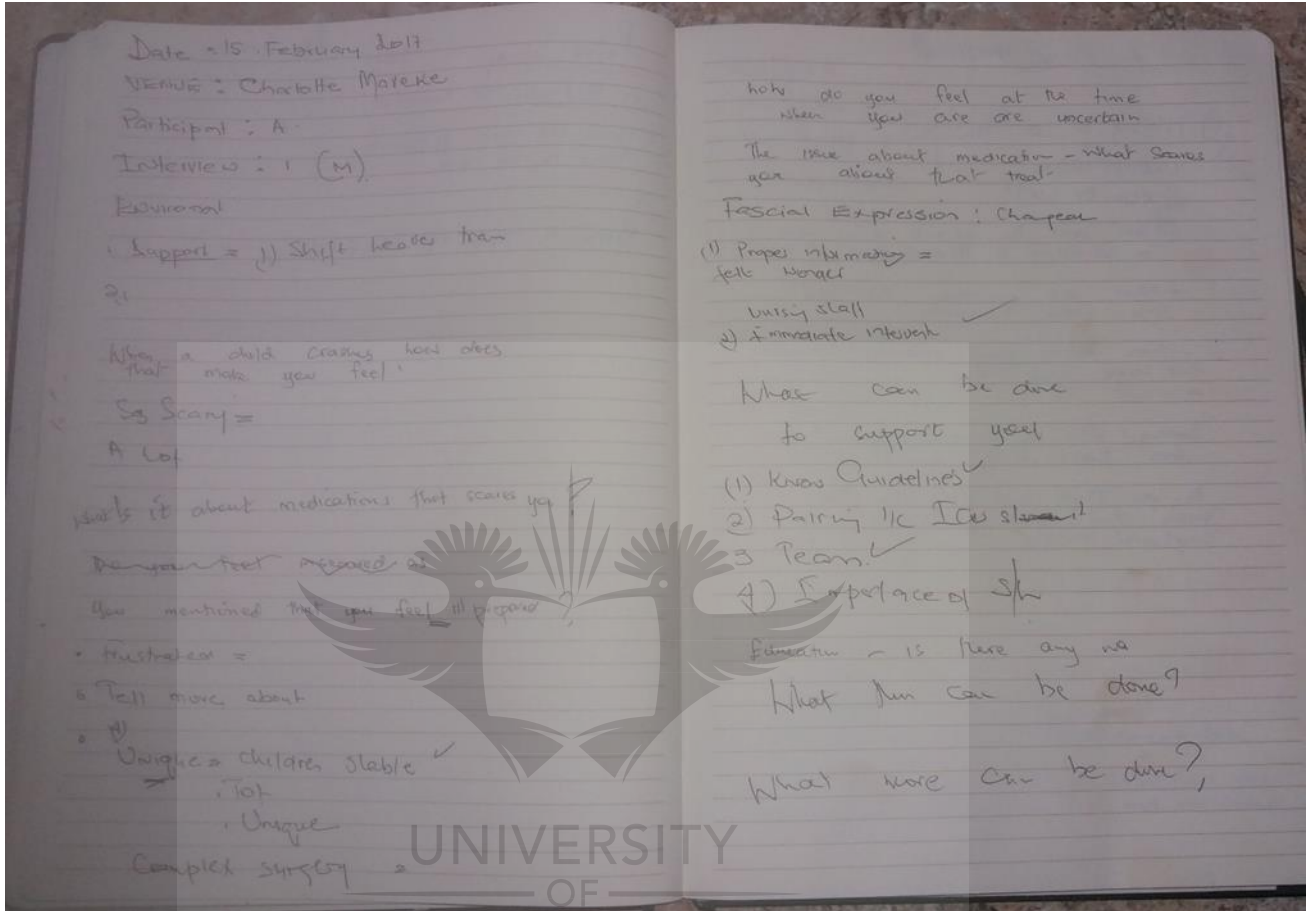 Date = 15 February 2017
VENUE : Charlotte Maxeke
Participant : A
Interview : 1 (M)
Support = 1) Shift leader
2)
When a child crashes how does
that make you feel
So Scary =
A Lot
What is it about medications that scares you ?
Do you feel prepared as
You mentioned that you feel ill prepared ?
• frustrated =
• Tell more about
• Unique = children stable ✓
. Tof
. Unique
Complex surgery =
how do you feel at the time
when you are are uncertain
The issue about medication - what scares
you about that treat-
Fascial Expression :
(1) Proper =
felt
2) Immediate
What can be done
to support
(1) Know Guidelines ✓
2) Pairing ICU
3 Team ✓
4) S/L
Education - is there any
What can be done?
What more can be done?
UNIVERSITY
OF